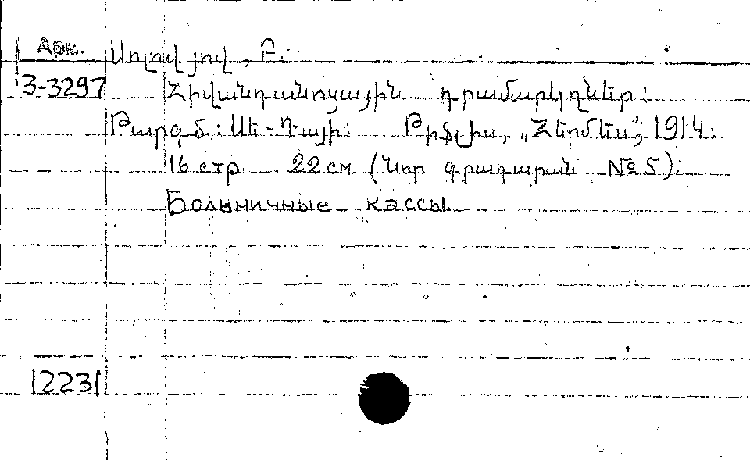 Арм.
Սոլովյով, Բ.
3-3297
Հիվանդանոցային դրամարկղներ:
Թարգմ: Սե-Դայի: Թիֆլիս, „Հերմես“, 1914.
16 стр 22 см (Նոր գրադարան № 5).
Больничные кассы
12231